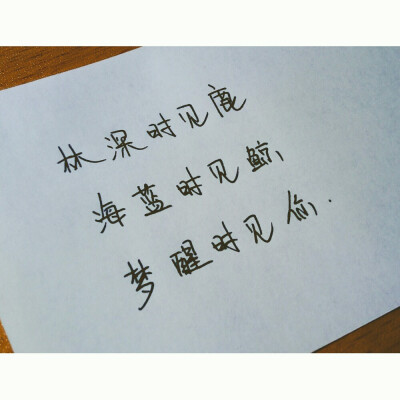 林深时见鹿
海蓝时见鲸
梦醒时见你.